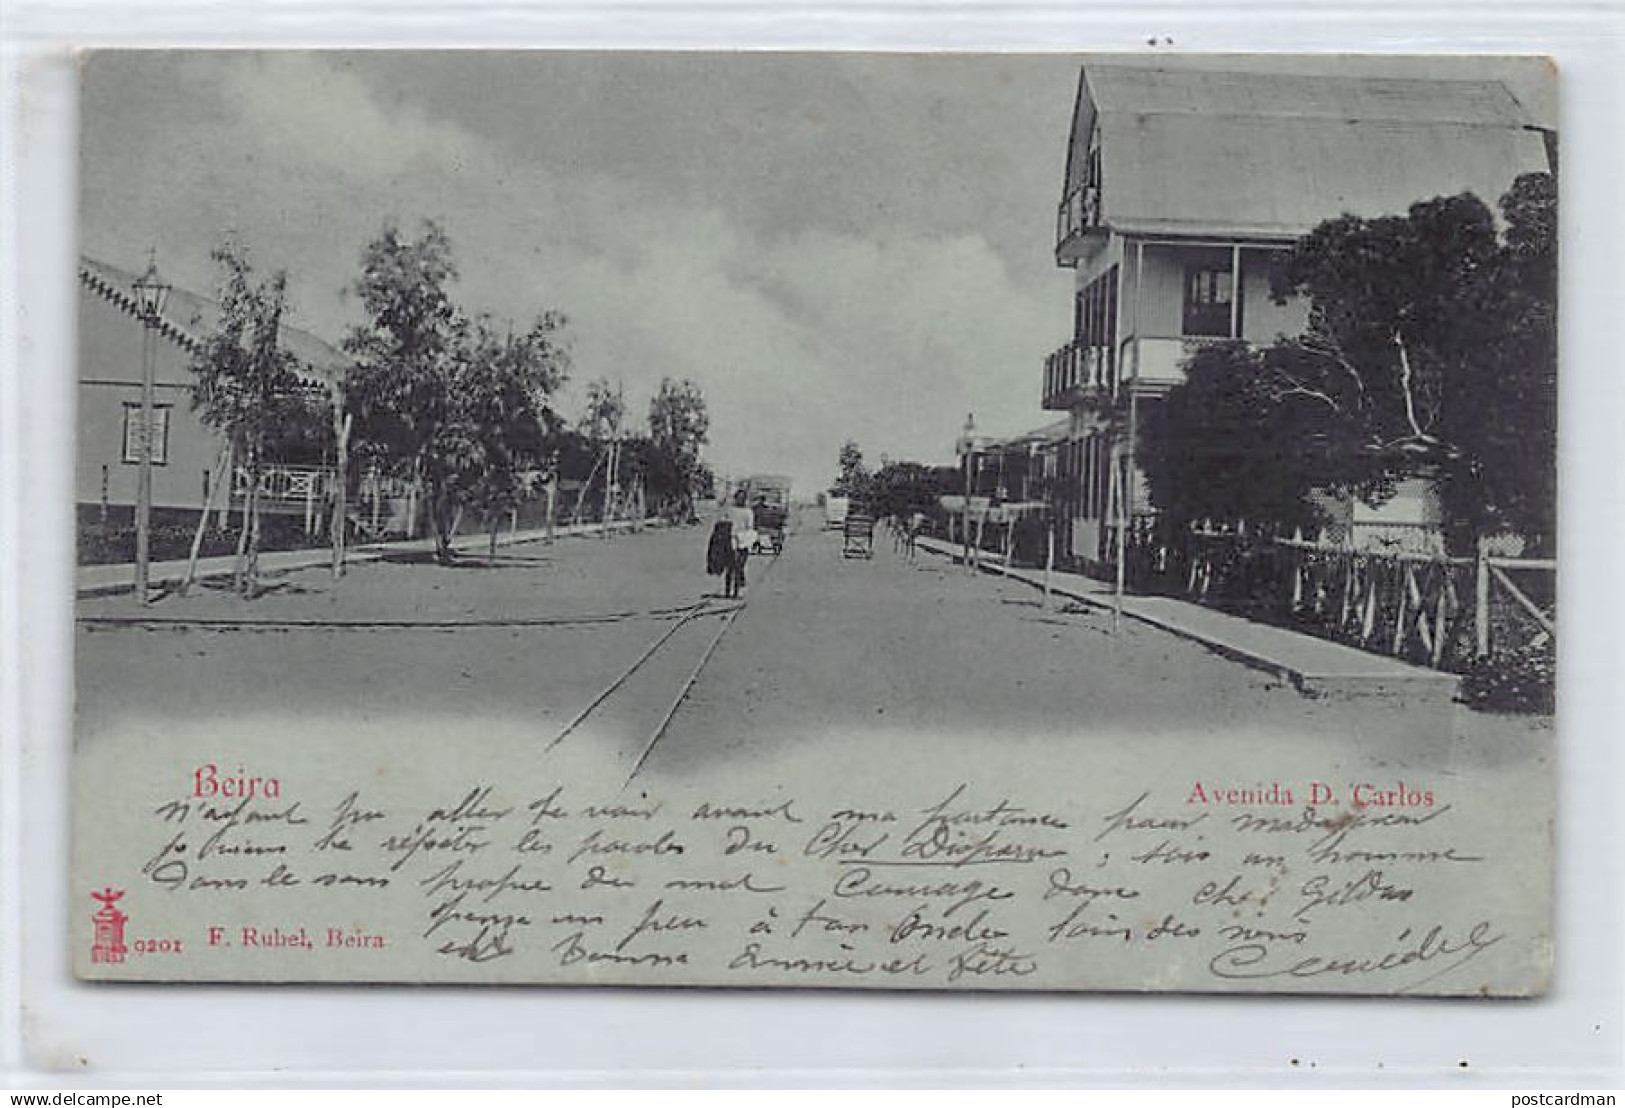 Beira
Avenida D. Carlos
n'ayant pu aller te voir avant ma partance pour madagascar
je viens te répéter les paroles du Cher Disparu, sois un homme
Dans le sens propre du mot Courage donc cher Gildas
pense un peu à ton Oncle loin des siens
et Bonne Année et Fête
9201 F. Rubel, Beira
www.delcampe.net/seller/postcardman
postcardman